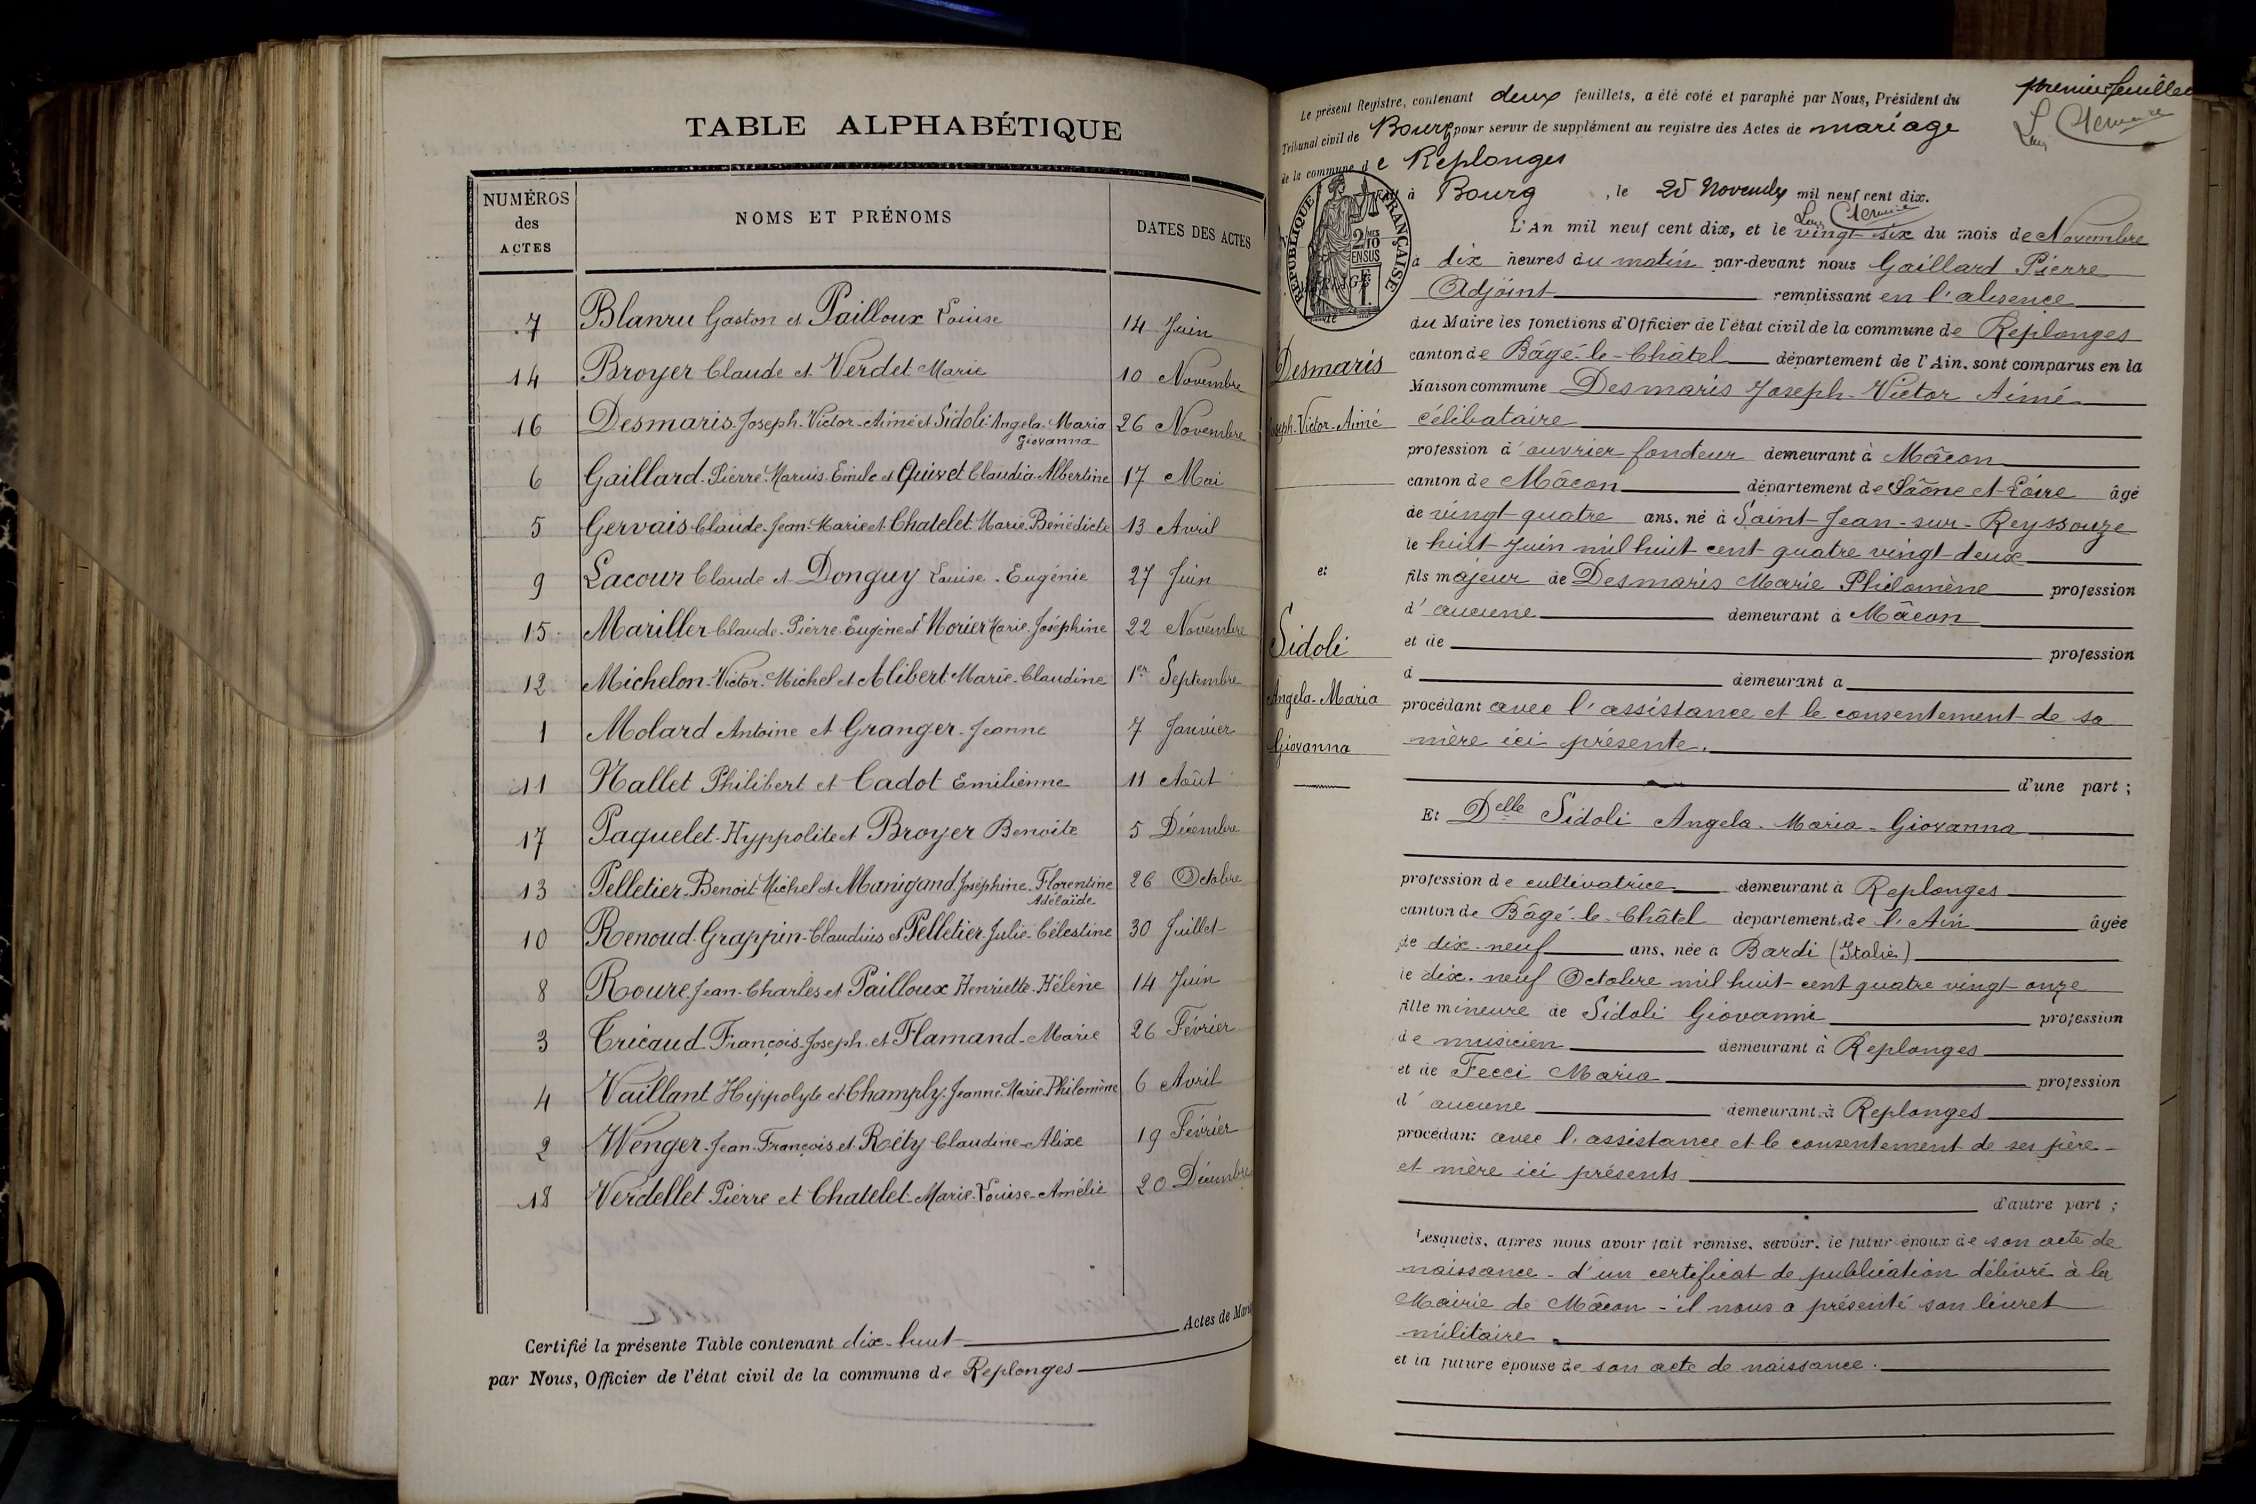 TABLE ALPHABÉTIQUE
NUMÉROS des ACTES
NOMS ET PRÉNOMS
DATES DES ACTES
7 Blanru Gaston et Pailloux Louise 14 Juin
14 Broyer Claude et Verdet Marie 10 Novembre
16 Desmaris Joseph-Victor-Aimé et Sidoli Angela-Maria Giovanna 26 Novembre
6 Gaillard Pierre-Marius-Emile et Quivet Claudia-Albertine 17 Mai
5 Gervais Claude-Jean-Marie et Chatelet Marie-Bénédicte 13 Avril
9 Lacour Claude et Donguy Louise-Eugénie 27 Juin
15 Mariller Claude-Pierre-Eugène et Morier Marie-Joséphine 22 Novembre
12 Michelon-Victor-Michel et Alibert Marie-Claudine 1er Septembre
1 Molard Antoine et Granger-Jeanne 7 Janvier
11 Nallet Philibert et Cadot Emilienne 11 Août
17 Paquelet-Hyppolite et Broyer Benoite 5 Décembre
13 Pelletier-Benoit-Michel et Manigand Joséphine-Florentine Adélaïde 26 Octobre
10 Renoud-Grappin-Claudius et Pelletier Julie-Célestine 30 Juillet
8 Roure Jean-Charles et Pailloux Henriette-Hélène 14 Juin
3 Tricaud François-Joseph et Flamand-Marie 26 Février
4 Vaillant Hippolyte et Champly-Jeanne-Marie-Philomène 6 Avril
2 Wenger-Jean-François et Réty Claudine-Alixe 19 Février
18 Verdellet Pierre et Chatelet-Marie-Louise-Amélie 20 Décembre
Certifié la présente Table contenant dix-huit Actes de Mari
par Nous, Officier de l'état civil de la commune de Replonges
premier feuillet
Le présent Registre, contenant deux feuillets, a été coté et paraphé par Nous, Président du
Tribunal civil de Bourg pour servir de supplément au registre des Actes de mariage
de la commune de Replonges
FAIT à Bourg, le 25 Novembre mil neuf cent dix.
RÉPUBLIQUE FRANÇAISE
2/10 EN SUS
L'An mil neuf cent dix, et le vingt-six du mois de Novembre
à dix heures du matin par-devant nous Gaillard Pierre
Adjoint remplissant en l'absence
du Maire les fonctions d'Officier de l'état civil de la commune de Replonges
canton de Bâgé-le-Châtel département de l'Ain, sont comparus en la
Maison commune Desmaris Joseph-Victor Aimé
célibataire
profession d'ouvrier fondeur demeurant à Mâcon
canton de Mâcon département de Saône et-Loire âgé
de vingt-quatre ans, né à Saint-Jean-sur-Reyssouze
le huit Juin mil huit cent quatre vingt-deux
fils majeur de Desmaris Marie Philomène profession
d'aucune demeurant à Mâcon
et de profession
d demeurant à
procédant avec l'assistance et le consentement de sa
mère ici présente.
d'une part ;
Desmaris
Joseph-Victor-Aimé
et
Sidoli
Angela-Maria
Giovanna
Et Delle Sidoli Angela-Maria-Giovanna
profession de cultivatrice demeurant à Replonges
canton de Bâgé-le-Châtel département de l'Ain âgée
de dix-neuf ans, née à Bardi (Italie)
le dix-neuf Octobre mil huit-cent quatre vingt-onze
fille mineure de Sidoli Giovanni profession
de musicien demeurant à Replonges
et de Fecci Maria profession
d'aucune demeurant à Replonges
procédant avec l'assistance et le consentement de ses père
et mère ici présents
d'autre part ;
Lesquels, après nous avoir fait remise, savoir: le futur époux de son acte de
naissance - d'un certificat de publication délivré à la
Mairie de Mâcon - il nous a présenté son livret
militaire
et la future épouse de son acte de naissance.